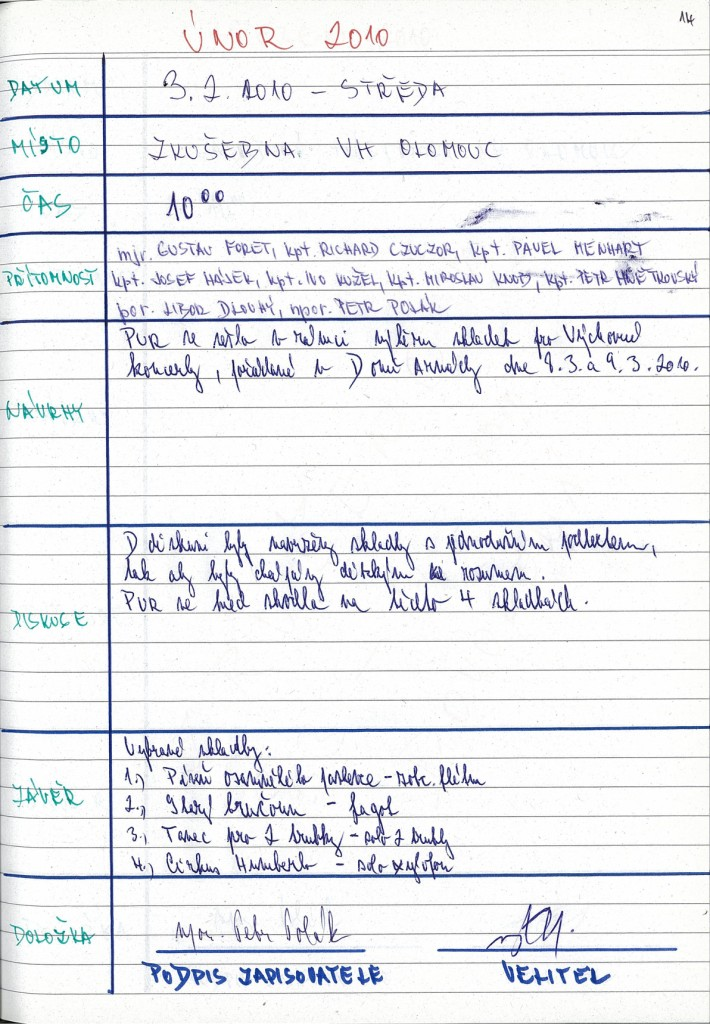 14
ÚNOR 2010
DATUM 3. 2. 2010 - STŘEDA
MÍSTO ZKUŠEBNA VH OLOMOUC
ČAS 10 00
mjr. GUSTAV FORET, kpt. RICHARD CZUCZOR, kpt. PAVEL MENHART
PŘÍTOMNOST kpt. JOSEF HÁJEK, kpt. IVO KUŽEL, kpt. MIROSLAV KNOP, kpt. PETR
por. LIBOR DLOUHÝ, npor. PETR POLÁK
PUR se sešla v rámci výběru skladeb pro Výchovné
koncerty, pořádané v Domě Armády dne 8.3. a 9.3. 2010.
NÁVRHY
V diskusi byly navrženy skladby s jednodušším podtextem,
tak aby byly chápány dětským rozumem.
PUR se hned shodla na těchto 4 skladbách.
DISKUSE
Vybrané skladby:
1.) Píseň osamělého pastevce - zobc. flétna
ZÁVĚR 2.) Starý bručoun - fagot
3.) Tanec pro 2 trubky - solo 2 trubky
4.) Cirkus Humberto - solo xylofon
DOLOŽKA npor. Petr Polák
PODPIS ZAPISOVATELE VELITEL